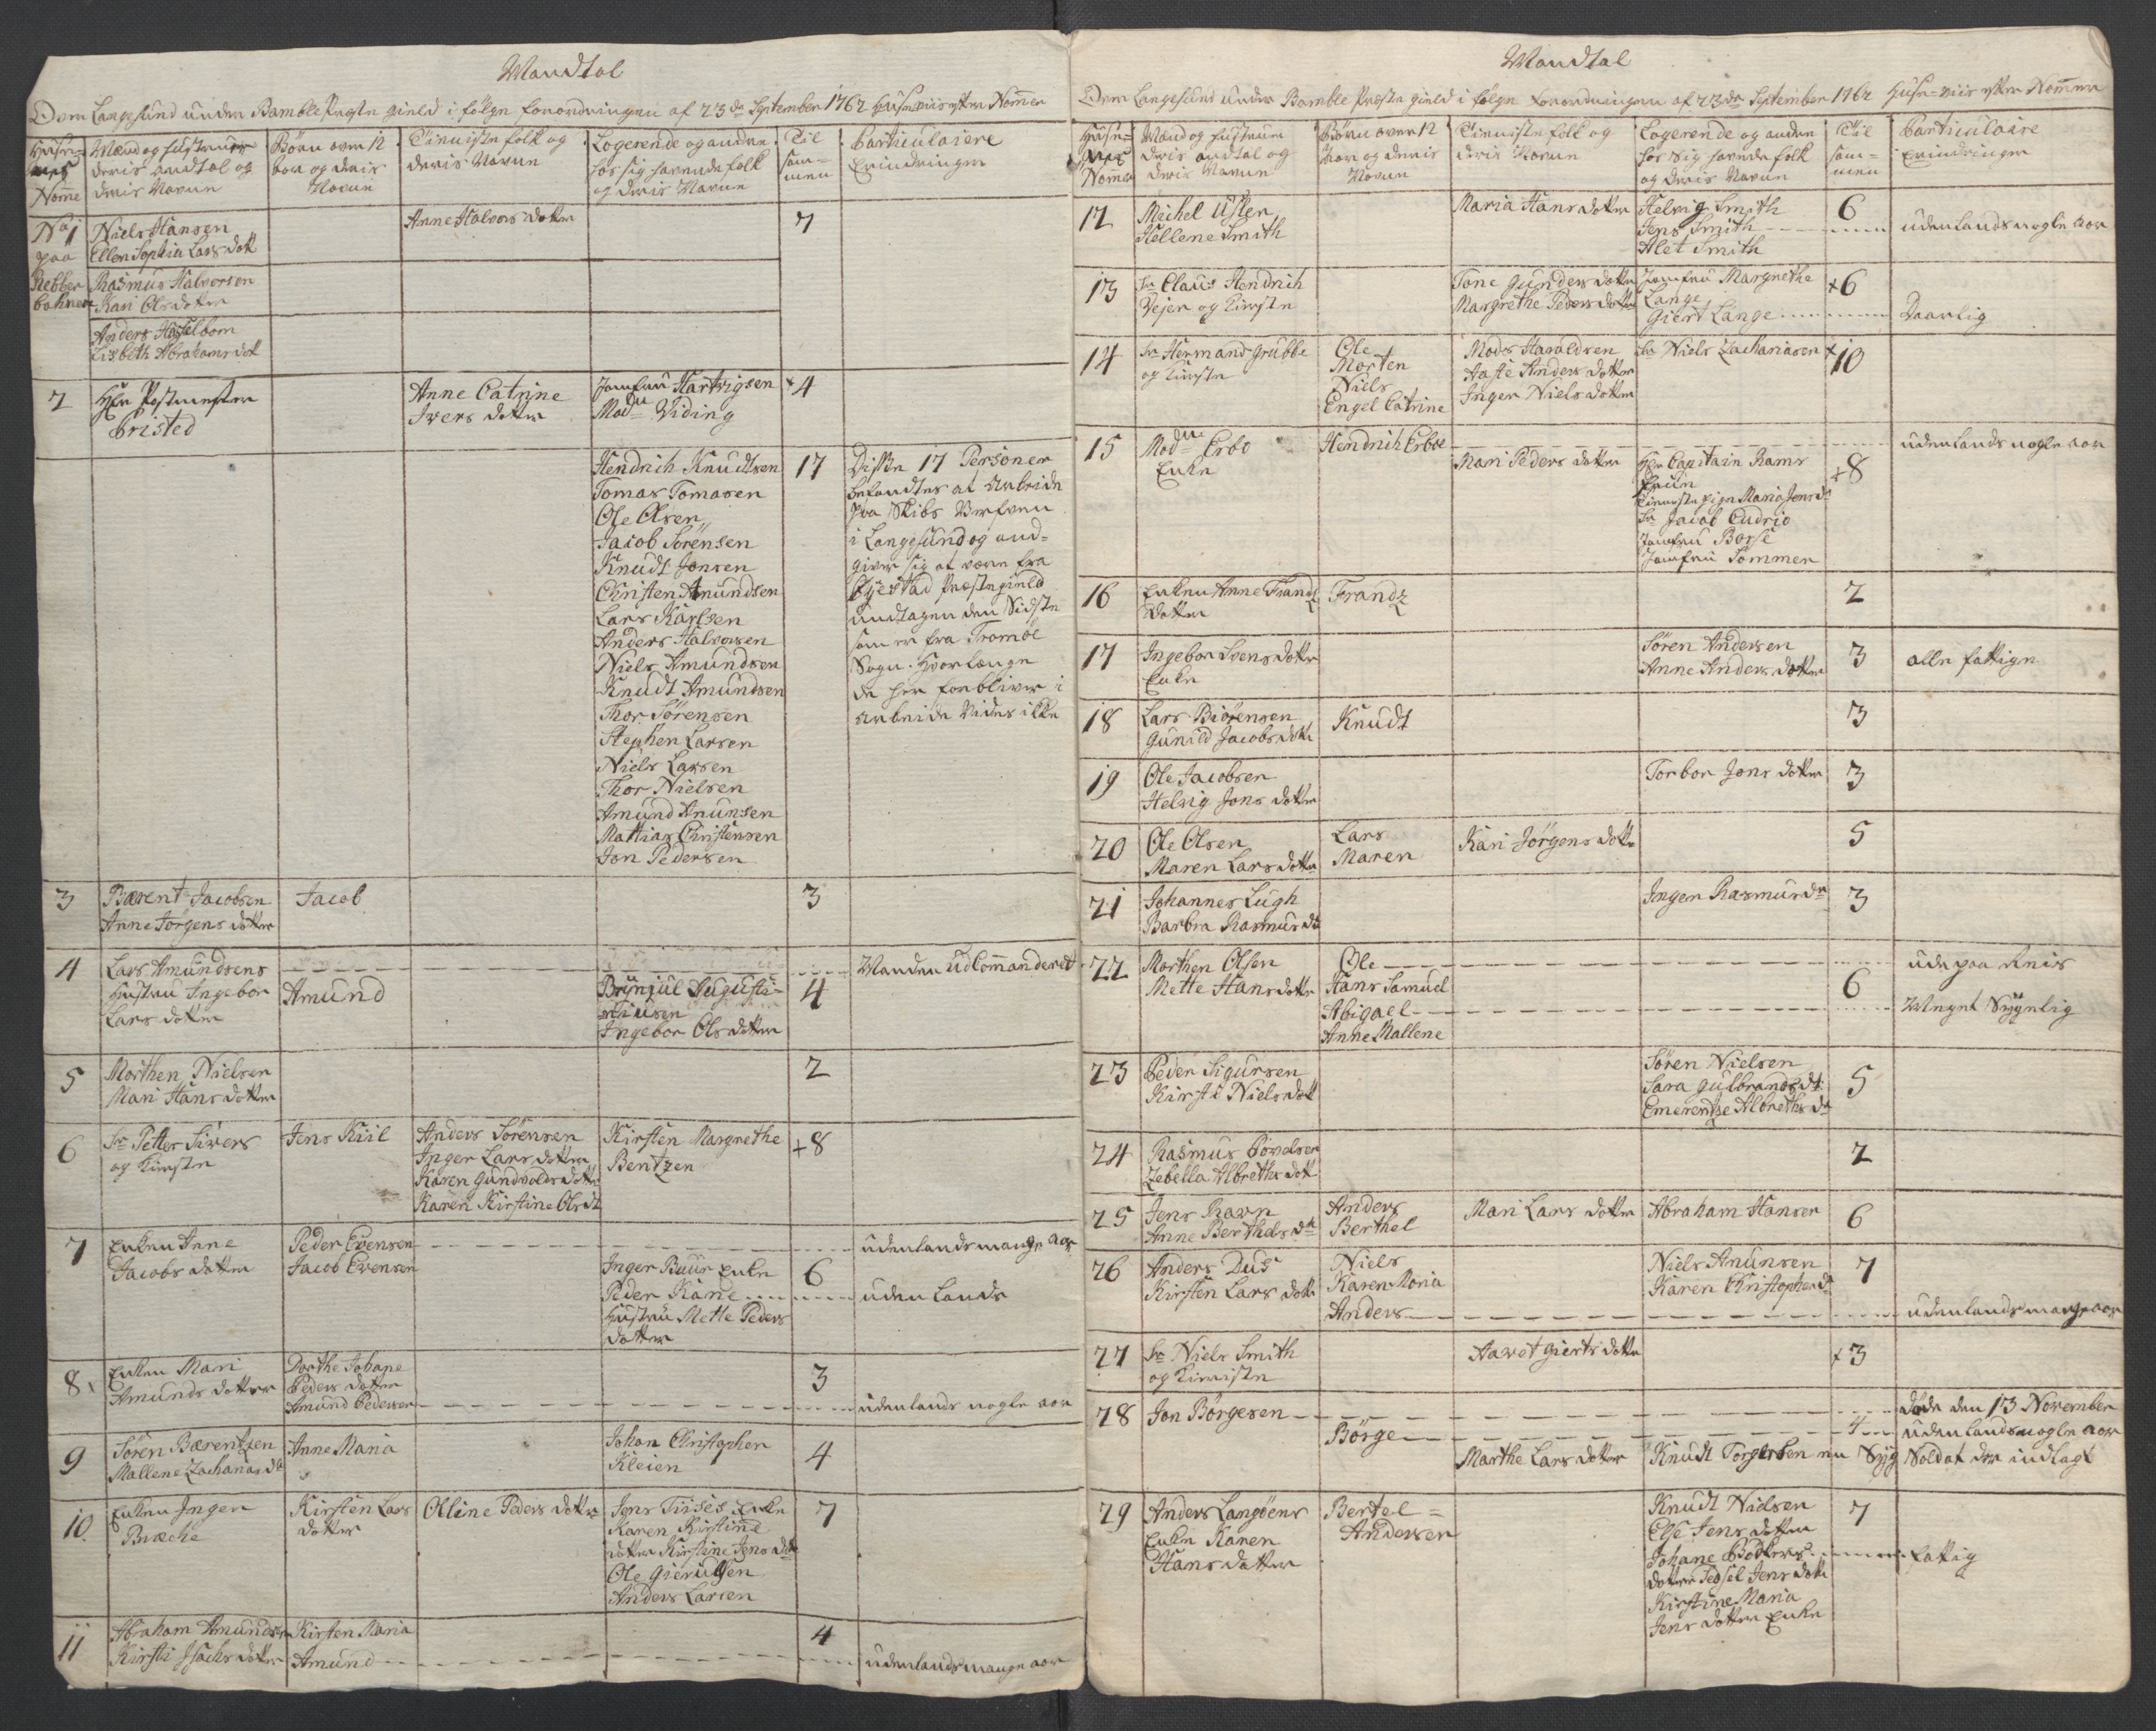 Mandtal
Over Langesund under Bamble Præste gield i følge forordningen af 23de September 1762 Husseviis efter Nommer
Husse-
Nomme
Mænd og Hustruer
deris andtal og
deris Navne
Børn over 12
aar og deris
Navne
Tieniste folk og
deris Navne
Logerende og andre
hos sig havende folk
og deris Navne
Til
sam-
men
Particulaire
Erindringer
No 1
paa
Rebber
bahnen
Niels Hansen
Ellen Sophia Lars dott
Anne Halvors dotter
7
Rasmus Halvorsen
Kari Ols dotter
Anders Hasselbom
Lisbeth Abrahams dott
2
Hr Postmester
Bristed
Anne Catrine
Ivers dotter
Jomfru Hartvigsen
Mad: Viding
+4
Hendrich Knudtsen
Tomas Tomasen
Ole Olsen
Jacob Sørensen
Knudt Jonsen
Christen Amundsen
Lars Karlsen
Anders Halvorsen
Niels Amundsen
Knudt Amundsen
Thor Sørensen
Stephen Larsen
Niels Larsen
Thor Nielsen
Amund Anunsen
Mattias Christensen
Jon Pedersen
17
Disse 17 Personer
befandtes at Arbeide
paa Skibs Verfven
i Langesund og and-
giver sig at være fra
Gjerstad Præstegield
undtagen den Sidste
som er fra Tromøe
Sogn. Hvorlænge
de her forbliver i
Arbeide Vides ikke
3
Bærent Jacobsen
Anne Jørgens dotter
Jacob
3
4
Lars Amundsens
Hustru Ingebor
Lars dotter
Amund
Brynjul Augusti-
niusen
Ingebor Ols dotter
4
Manden Udcommanderet
5
Morthen Nielsen
Mari Hans dotter
2
6
Sr Petter Sivers
og Kieriste
Jens Kiil
Anders Sørensen
Inger Lars dotter
Karen Gundvolds dotter
Karen Kirstine Ols dt
Kirsten Margrethe
Bentzen
+8
7
Enken Anne
Jacobs dotter
Peder Evensen
Jacob Evensen
Inger Buur Enke
Peder Kane
Hustru Mette Peders
dotter
6
udenlands mange aar
uden Lands
8
Enken Mari
Amunds dotter
Dorthe Johane
Peders dotter
Amund Pedersen
3
udenlands nogle aar
9
Søren Bærentzen
Mallene Zacharias dt
Anne Maria
Johan Christopher
Kleien
4
10
Enken Inger
Bræche
Kirsten Lars
dotter
Olline Peders dotter
Jens Tiises Enke
Karen Kirstine
dotter Kirstine Jens dott
Ole Gierulsen
Anders Larsen
7
11
Abraham Amundsen
Kirsti Isachs dotter
Kirsten Maria
Amund
4
udenlands mange aar
Mandtal
Over Langesund under Bamble Præste gield i følge forordningen af 23de September 1762 Husse-viis efter Nommer
Husse-
Nommer
Mand og Hustruer
deris andtal og
deris Navne
Børn over 12
Aar og deris
Navne
Tieniste folk og
deris Navne
Logerende og andre
hos sig havende folk
og deris Navne
Til
sam-
men
Particulaire
Erindringer
12
Michel Usler
Hellene Smith
Maria Hans dotter
Helvig Smith
Jens Smith
Alet Smith
6
udenlands nogle aar
13
Sr Claus Hendrich
Vejer og Kieriste
Tone Gunders dotter
Margrethe Peders dotter
Jomfru Margrethe
Lange
Giert Lange
+6
Daarlig
14
Sr Hermand Grubbe
og Kieriste
Ole
Morten
Niels
Engel Catrine
Mads Haraldsen
Aase Anders dotter
Inger Niels dotter
Sr Niels Zachariasen
+10
15
Mad: Erbo
Enke
Hendrich Erboe
Mari Peders dotter
Hr Capitain Rams
Frue
Tieneste pige Maria Jens dr
Sr Jacob Cudrio
Jomfru Borse
Jomfru Sommer
+8
udenlands nogle aar
16
Enken Anne Frandz
dotter
Frandz
2
17
Ingebor Svens dotter
Enke
Søren Andersen
Anne Anders dotter
3
alle fattige
18
Lars Biørensen
Gunild Jacobs dott
Knudt
3
19
Ole Jacobsen
Helvig Jons dotter
Torbor Jons dotter
3
20
Ole Olsen
Maren Lars dotter
Lars
Maren
Kari Jørgens dotter
5
21
Johannes Lugh
Barbra Rasmus dt
Inger Rasmus dr
3
22
Morthen Olsen
Mette Hans dotter
Ole
Hans Samuel
Abigael
Anne Mallene
6
ude paa Reis
Meget Sygelig
23
Peder Sigursen
Kirsti Niels dott
Søren Nielsen
Sara Gulbrands dt
Emerentze Albreths dt
5
24
Rasmus Povelsen
Zebella Albreths dott
2
25
Jens Ravn
Anne Berthels dt
Anders
Berthel
Mari Lars dotter
Abraham Hansen
6
26
Anders Dus
Kirsten Lars dott
Niels
Karen Maria
Anders
Niels Anunsen
Karen Christophers dt
7
udenlands mange aar
27
Sr Niels Smith
og Kieriste
Aavet Gierts dotter
+3
28
Jon Børgesen
Børge
Marthe Lars dotter
Knudt Torgersen en Syg Soldat der indlagt
4
døde den 13 November
udenlands nogle aar
29
Anders Langøens
Enke Karen
Hans dotter
Bertel
Andersen
Knudt Nielsen
Else Jens dotter
Johane Bødkers
dotter Sedsel Jens dott
Kirstine Maria
Jens dotter Enke
7
fattig